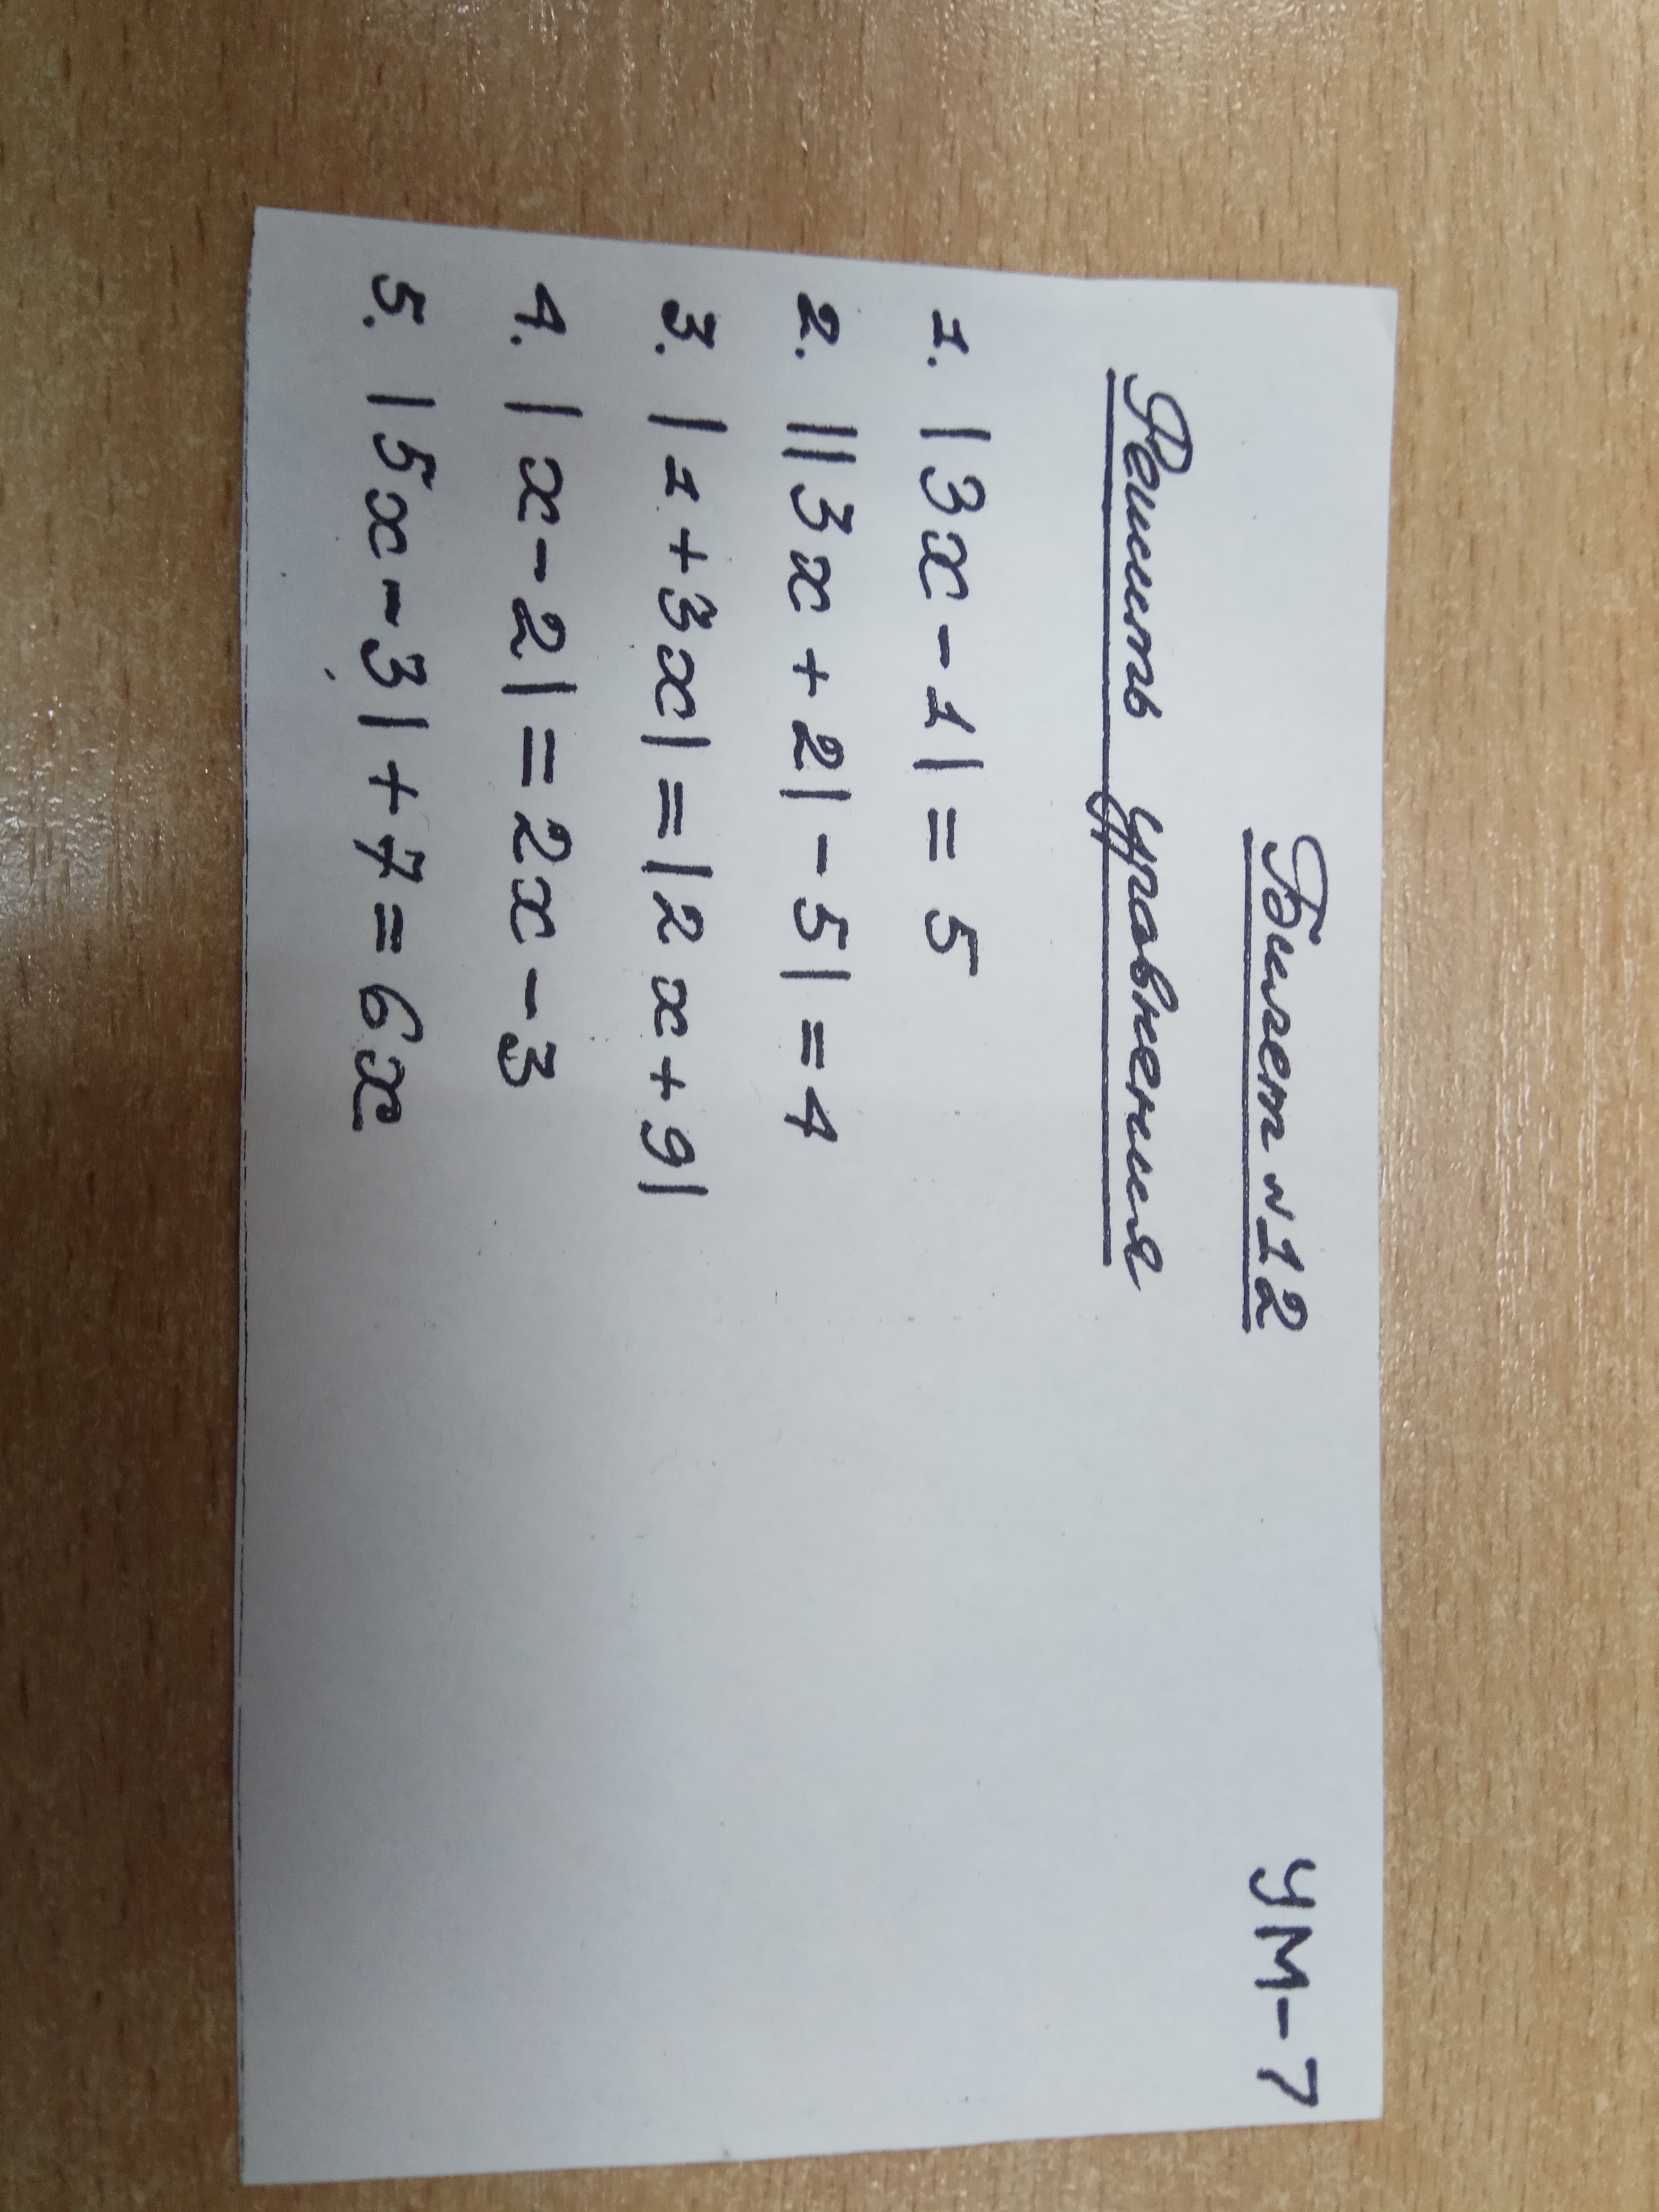 Билет №12 УМ-7
Решить уравнения
1. |3x-1|=5
2. ||3x+2|-5|=4
3. |1+3x|=|2x+9|
4. |x-2|=2x-3
5. |5x-3|+7=6x